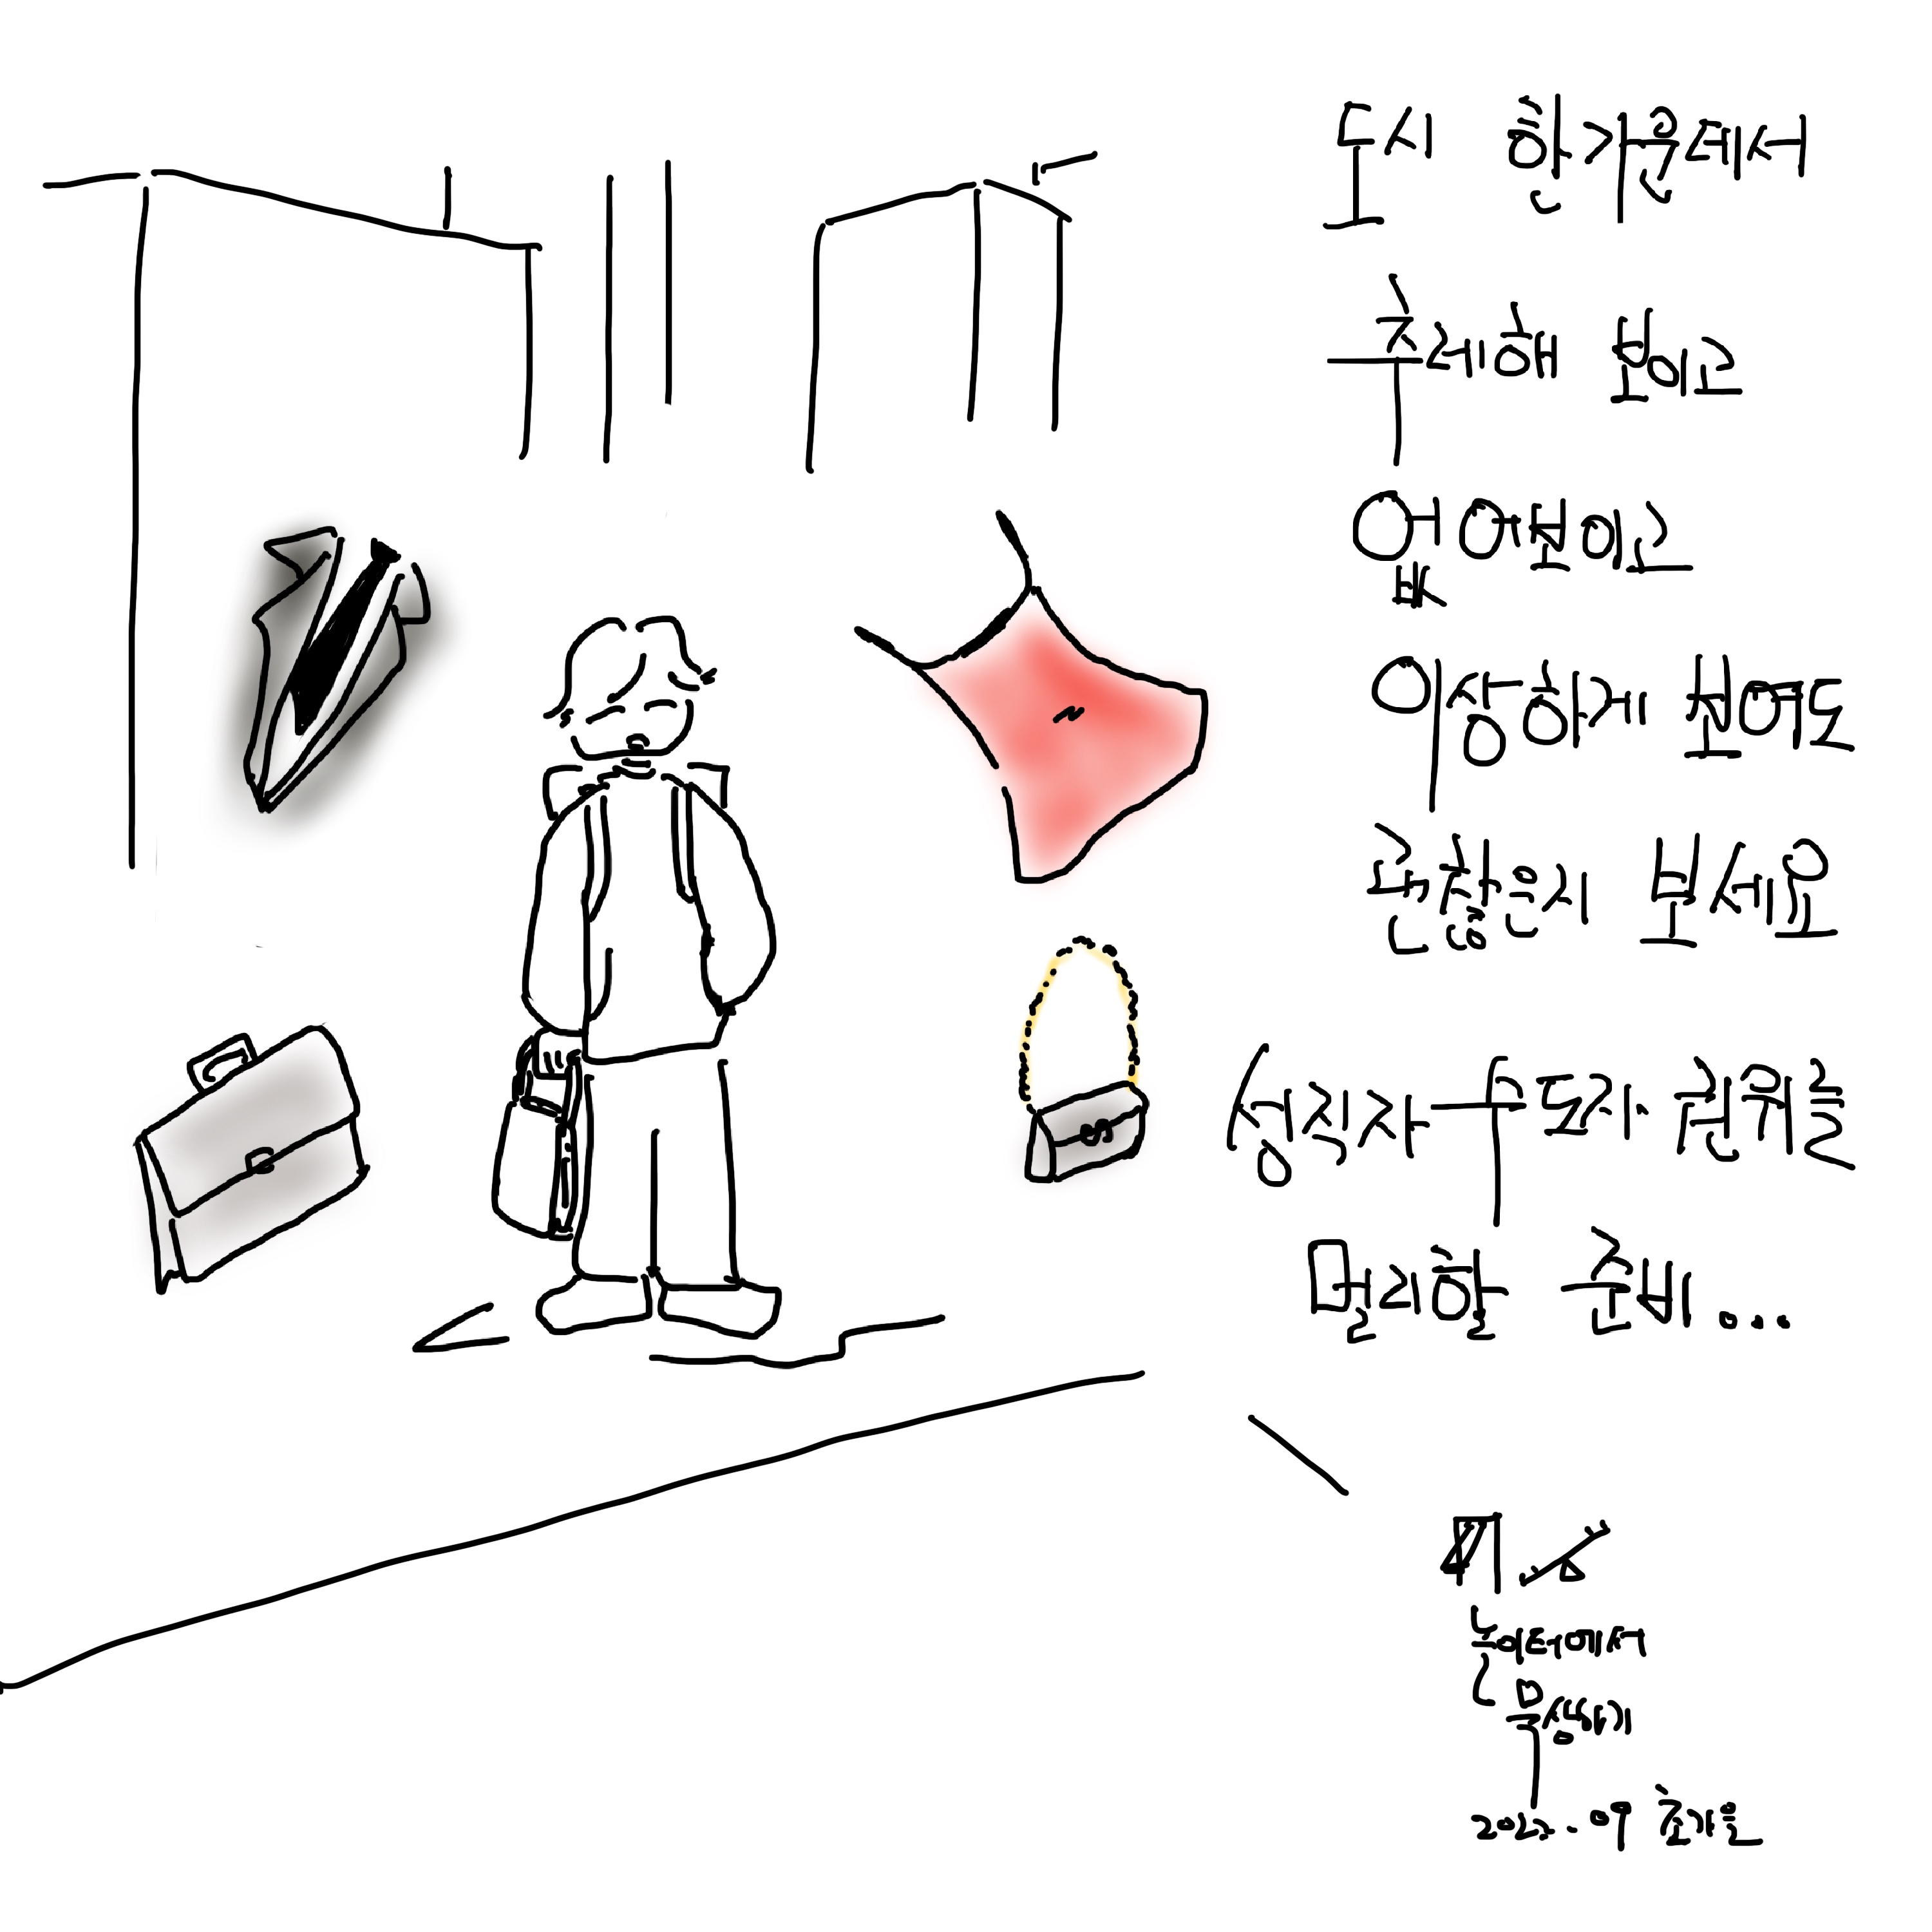 도시 한가운데서
추레해 보이고
없어보이고
이상하게 보여도
괜찮은지 보세요
성직자 수도자 권위를
멀리할 준비...
놀이터에서
묵상하기
2022.09 초가을